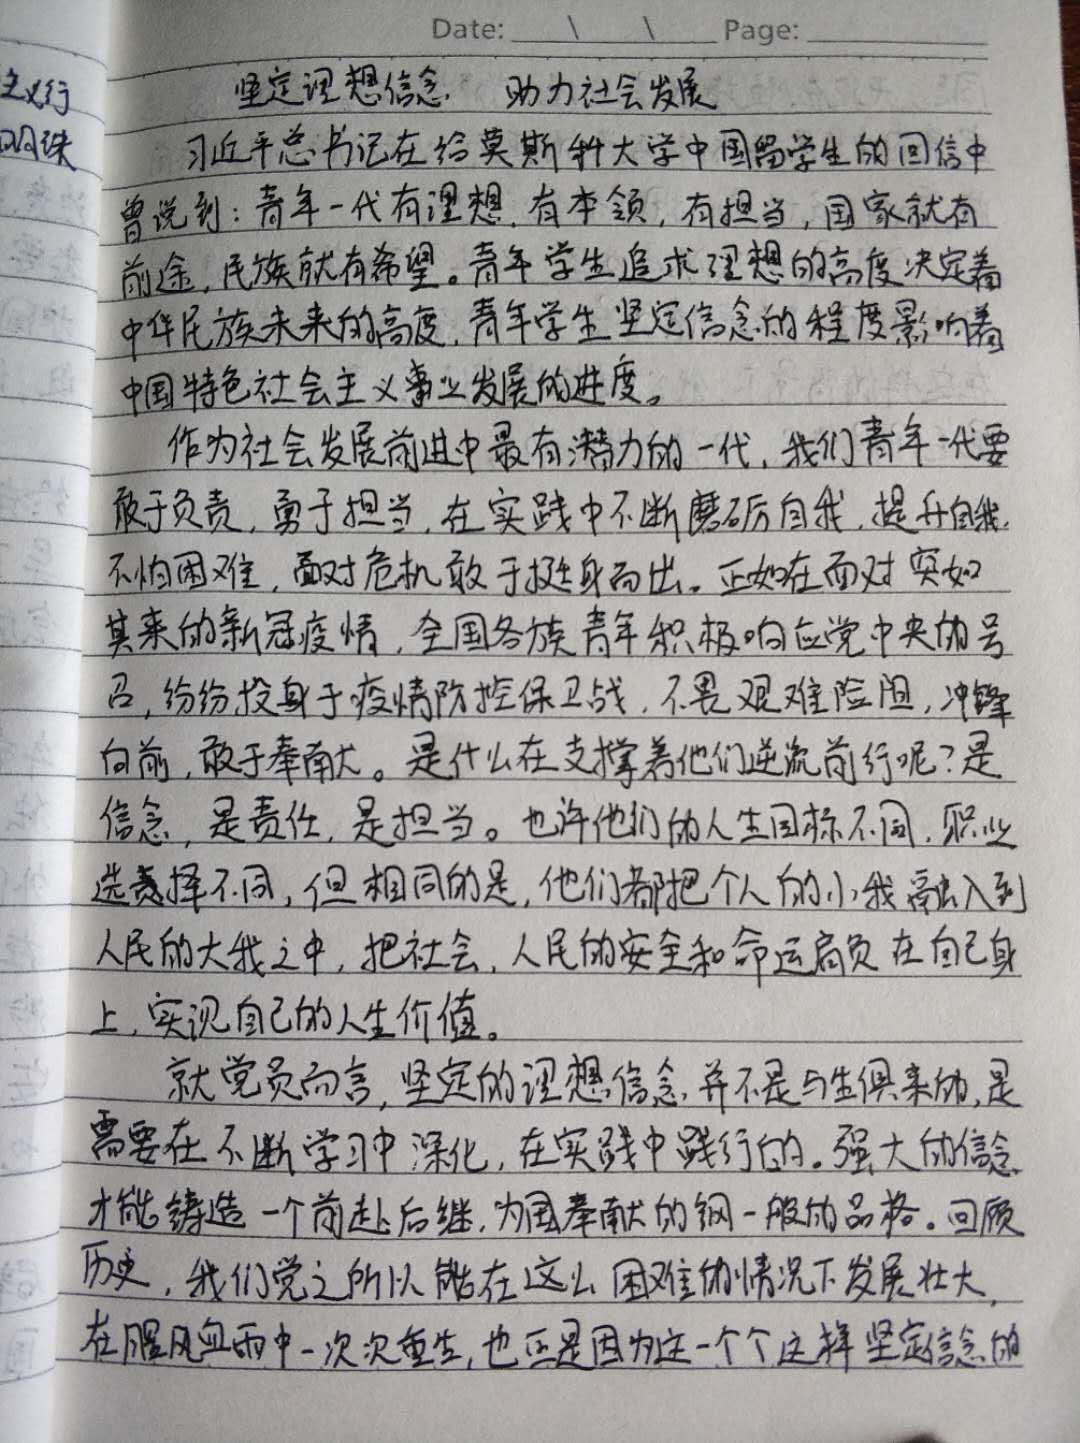 主义行
明珠
Date: \ \ Page:
坚定理想信念 助力社会发展
习近平总书记在给莫斯科大学中国留学生的回信中
曾说到：青年一代有理想，有本领，有担当，国家就有
前途，民族就有希望。青年学生追求理想的高度决定着
中华民族未来的高度，青年学生坚定信念的程度影响着
中国特色社会主义事业发展的进度。
作为社会发展前进中最有潜力的一代，我们青年一代要
敢于负责，勇于担当，在实践中不断磨砺自我，提升自我，
不怕困难，面对危机敢于挺身而出。正如在面对突如
其来的新冠疫情，全国各族青年积极响应党中央的号
召，纷纷投身于疫情防控保卫战，不畏艰难险阻，冲锋
向前，敢于奉献。是什么在支撑着他们逆流前行呢？是
信念，是责任，是担当。也许他们的人生目标不同，职业
选择不同，但相同的是，他们都把个人的小我融入到
人民的大我之中，把社会，人民的安全和命运肩负在自己身
上，实现自己的人生价值。
就党员而言，坚定的理想信念并不是与生俱来的，是
需要在不断学习中深化，在实践中践行的。强大的信念
才能铸造一个前赴后继，为国奉献的钢一般的品格。回顾
历史，我们党之所以能在这么困难的情况下发展壮大，
在腥风血雨中一次次重生，也正是因为这一个个这样坚定信念的